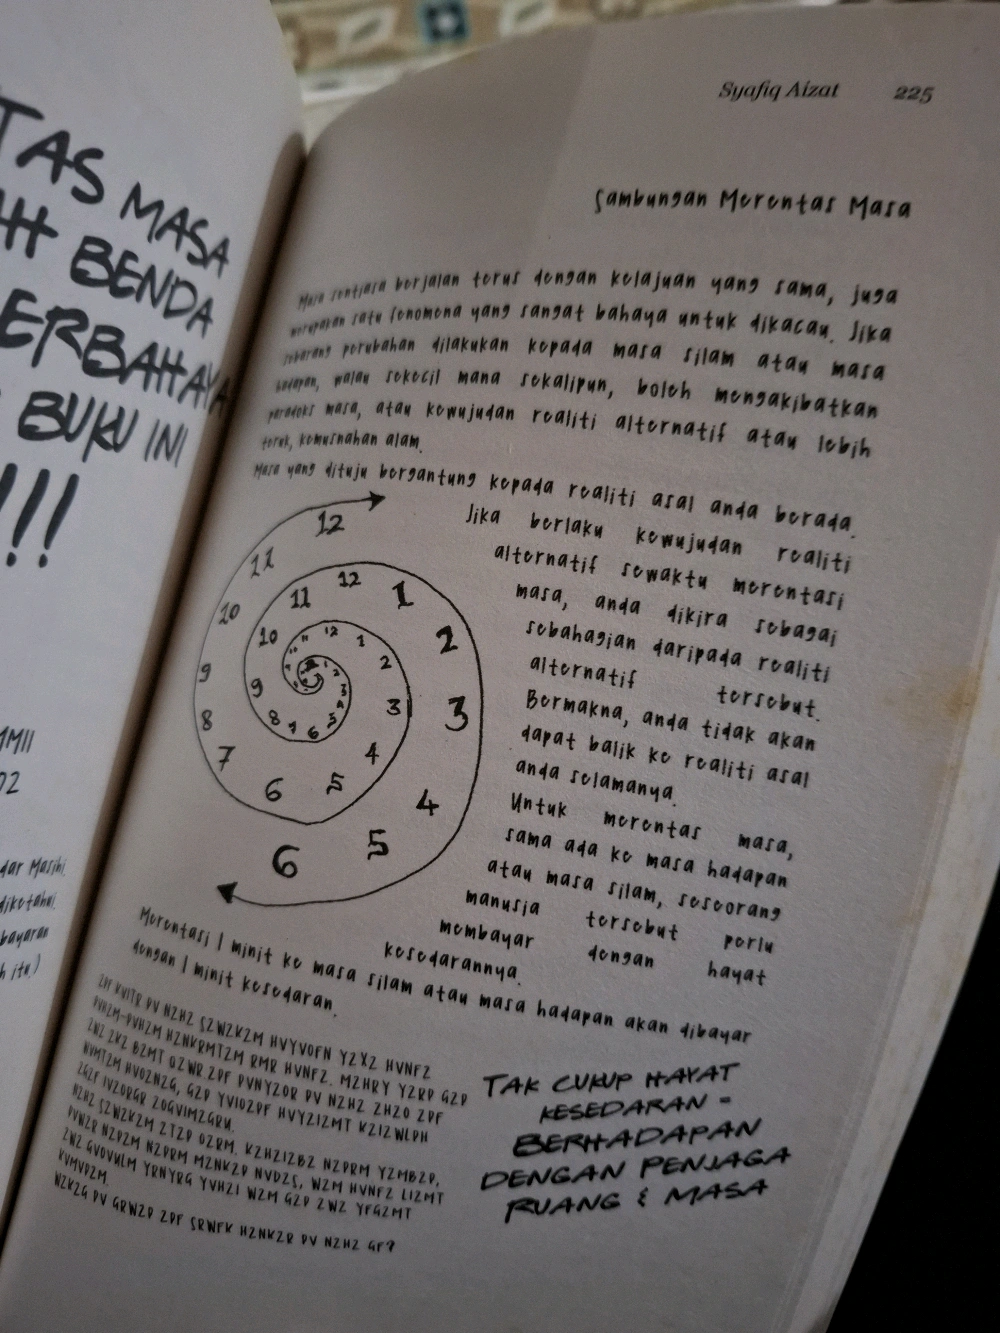 TAS MASA
BENDA
ERBAHAYA
BUKU INI
!!!
MMII
02
dar Masihi.
diketahui.
bayaran
h itu)
Syafiq Aizat 225
Sambungan Merentas Masa
Masa sentiasa berjalan terus dengan kelajuan yang sama, juga
merupakan satu fenomena yang sangat bahaya untuk dikacau. Jika
sebarang perubahan dilakukan kepada masa silam atau masa
hadapan, walau sekecil mana sekalipun, boleh mengakibatkan
paradoks masa, atau kewujudan realiti alternatif atau lebih
teruk, kemusnahan alam.
Masa yang dituju bergantung kepada realiti asal anda berada.
Jika berlaku kewujudan realiti
alternatif sewaktu merentasi
masa, anda dikira sebagai
sebahagian daripada realiti
alternatif tersebut.
Bermakna, anda tidak akan
dapat balik ke realiti asal
anda selamanya.
Untuk merentas masa,
sama ada ke masa hadapan
atau masa silam, seseorang
manusia tersebut perlu
membayar dengan hayat
kesedarannya.
12
11 12 1
10 11 2
10 12 1
9 9 2 3
8 8 3
7 7 6 5 4
6 5 4
6 5
Merentasi 1 minit ke masa silam atau masa hadapan akan dibayar
dengan 1 minit kesedaran.
ZPF KVITR PV NZHZ SZWZKZM HVYVOFN YZXZ HVNFZ
PVHZM-PVHZM HZNKRMTZM RMR HVNFZ. MZHRY YZRP GZP
ZWZ ZKZ BZMT OZWR. ZPF PVNYZOR PV NZHZ ZHZO ZPF
WVMTZM HVOZNZG, GZP YVIOZPF HVYZIZMT KZIZWLPH
ZGZF IVZORGR ZOGVIMZGRU.
NZHZ SZWZKZM ZTZP OZRM. KZHZIZBZ NZPRM YZMBZP,
PVWZR NZPZM NZPRM MZNKZP NVDZS, WZM HVNFZ LIZMT
ZWZ GVOVULM YRNYRG YVHZI WZM GZP ZWZ YFGZMT
KVMVPZM.
NZKZG PV GRWZP ZPF SRWFK HZNKZR PV NZHZ GF?
TAK CUKUP HAYAT
KESEDARAN =
BERHADAPAN
DENGAN PENJAGA
RUANG & MASA